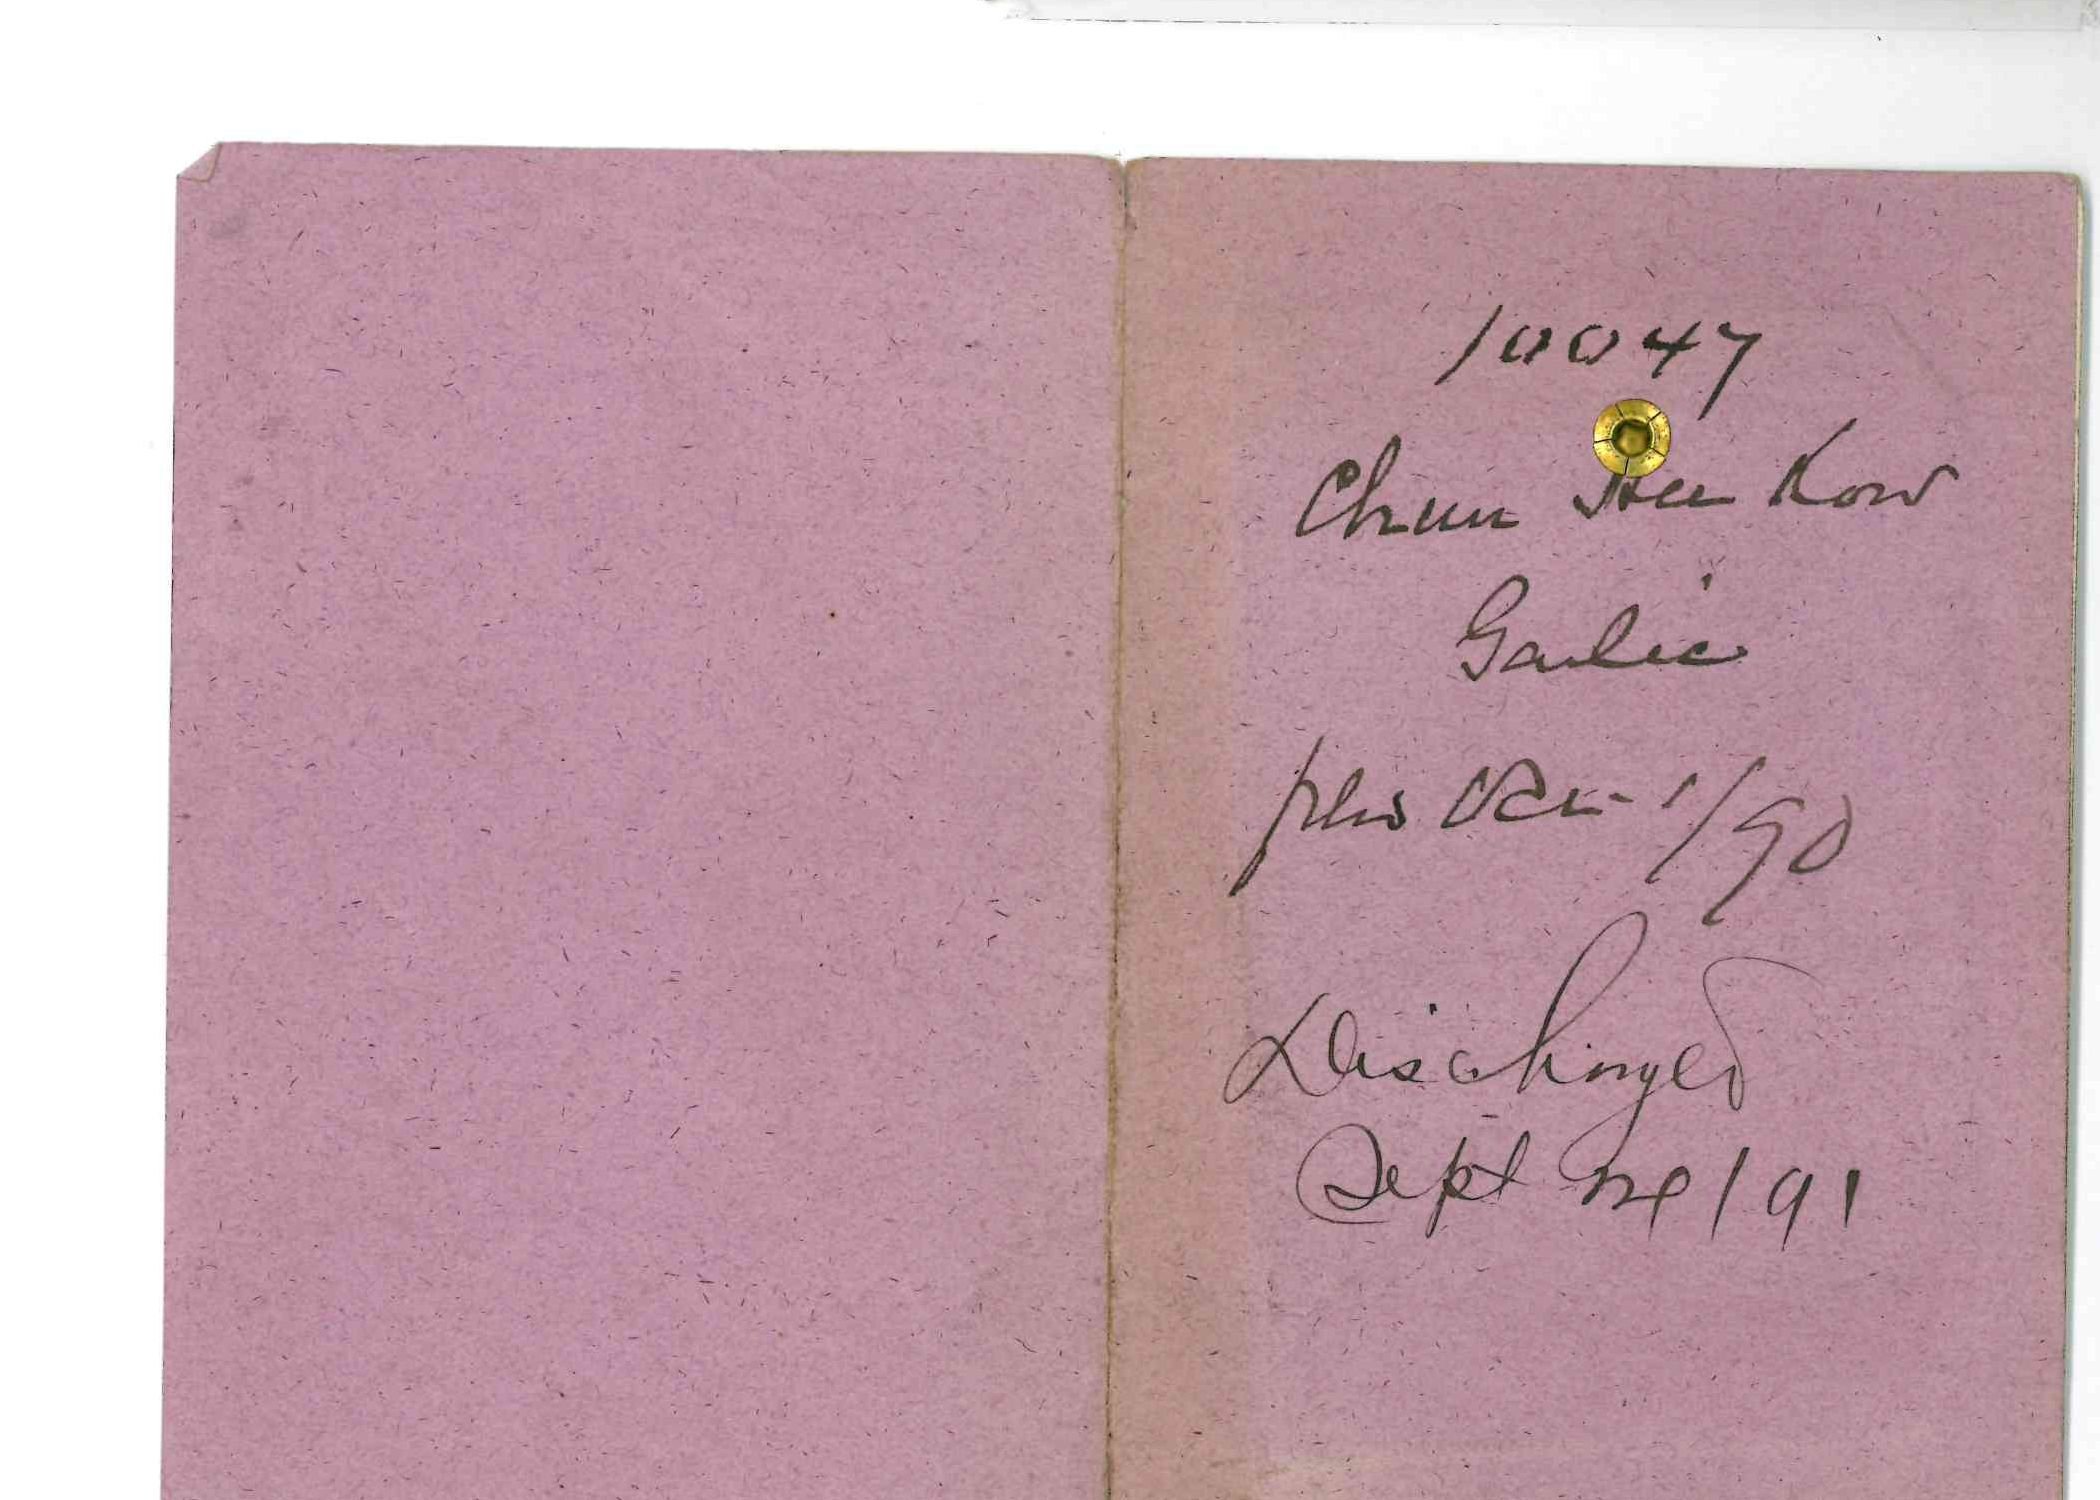 10047
Chun Hee Kow
Gaelic
Dec 1/90
Discharged
Sept 24/91